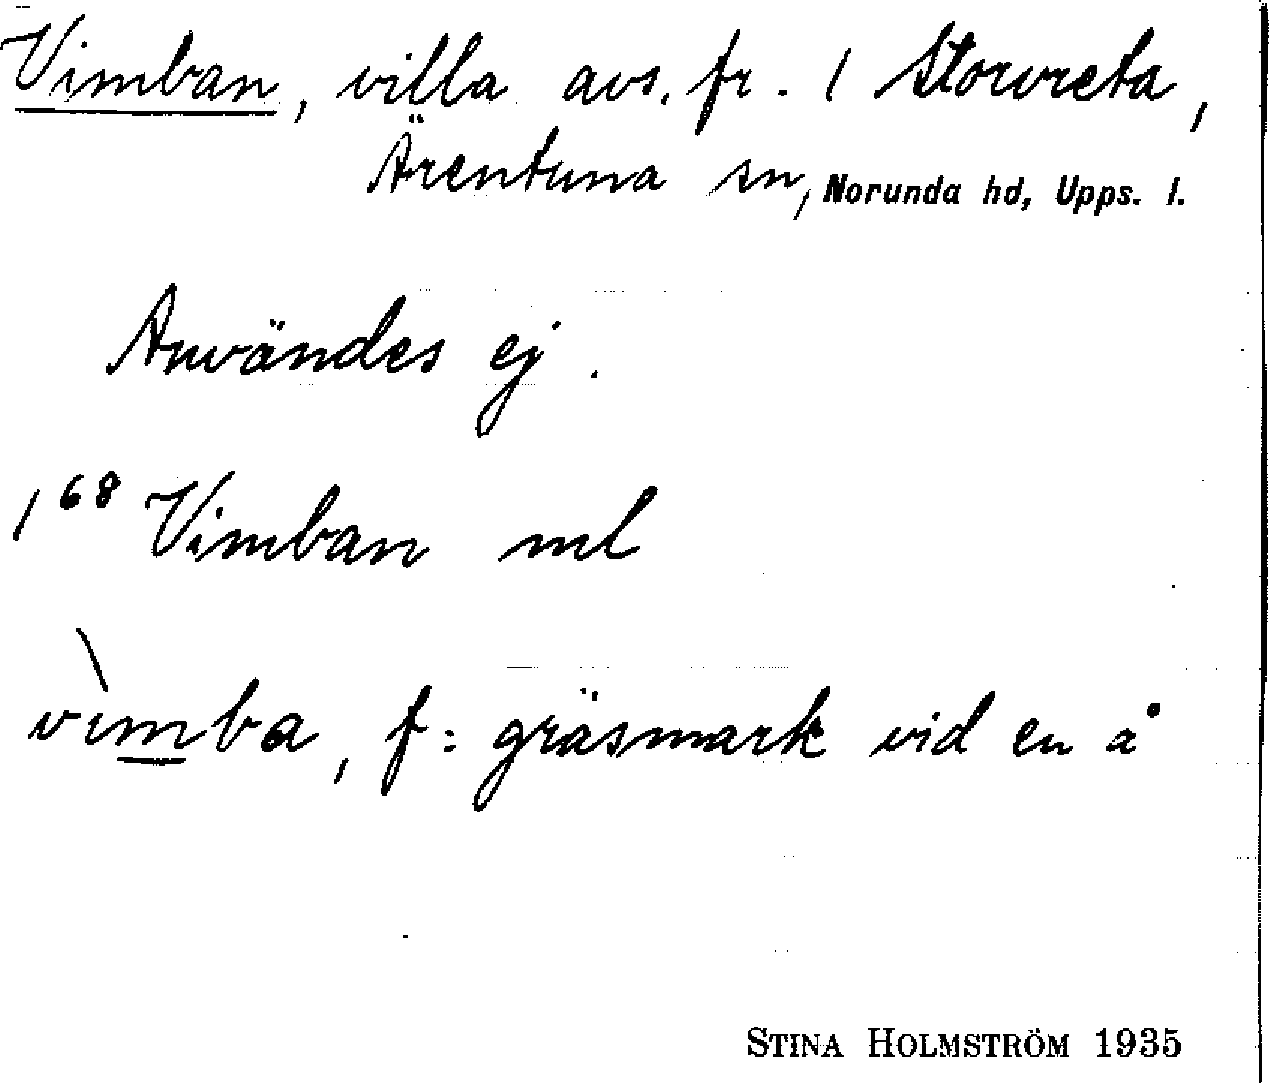 Vimban, villa avs. fr. / Storvreta,
Ärentuna sn, Norunda hd, Upps. l.
Användes ej.
/ 68 Vimban ml
vìmba, f: gräsmark vid en å
STINA HOLMSTRÖM 1935